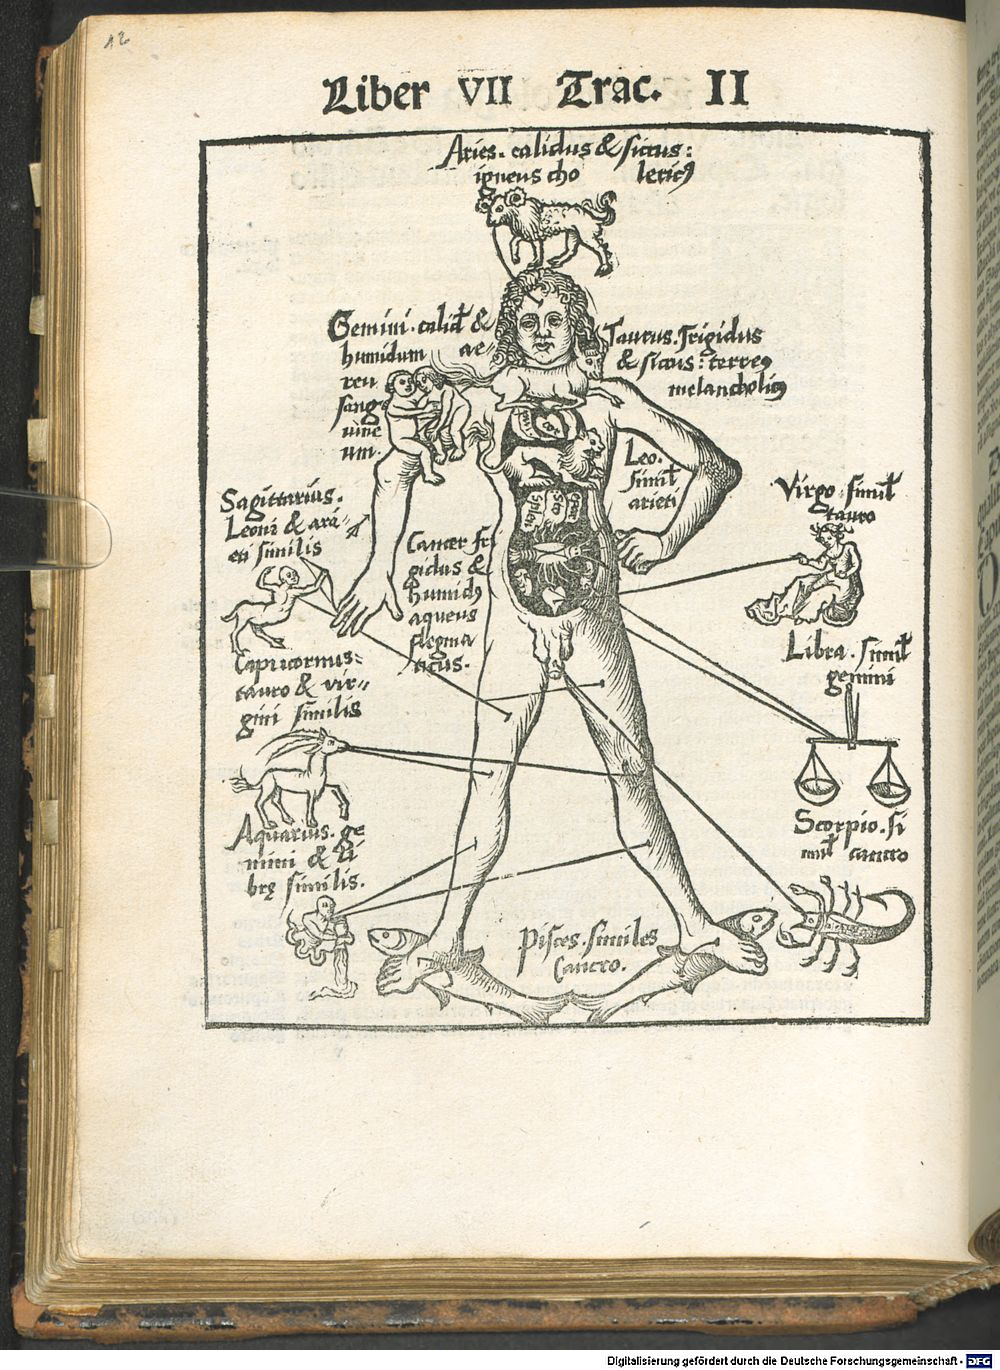 12
Liber VII Trac. II
Aries. calidus & siccus:
igneus cho lericꝰ
Gemini. calid &
humidum ae-
reu
sang-
uine
um.
Taurus. frigidus
& siccus: terreꝰ
melancholicꝰ
Leo.
simil
arieti
Virgo. simil
tauro
Sagittarius.
Leoni & ari-
eti similis
Cancer fri
gidus &
humidꝰ
aqueus
flegma
ticus.
splen
Libra. simil
gemini
Capricornus-
tauro & vir-
gini similis
Scorpio. si
mil cancro
Aquarius. ge
mini & li
brę similis.
Pisces. similes
Cancro.
Digitalisierung gefördert durch die Deutsche Forschungsgemeinschaft - DFG